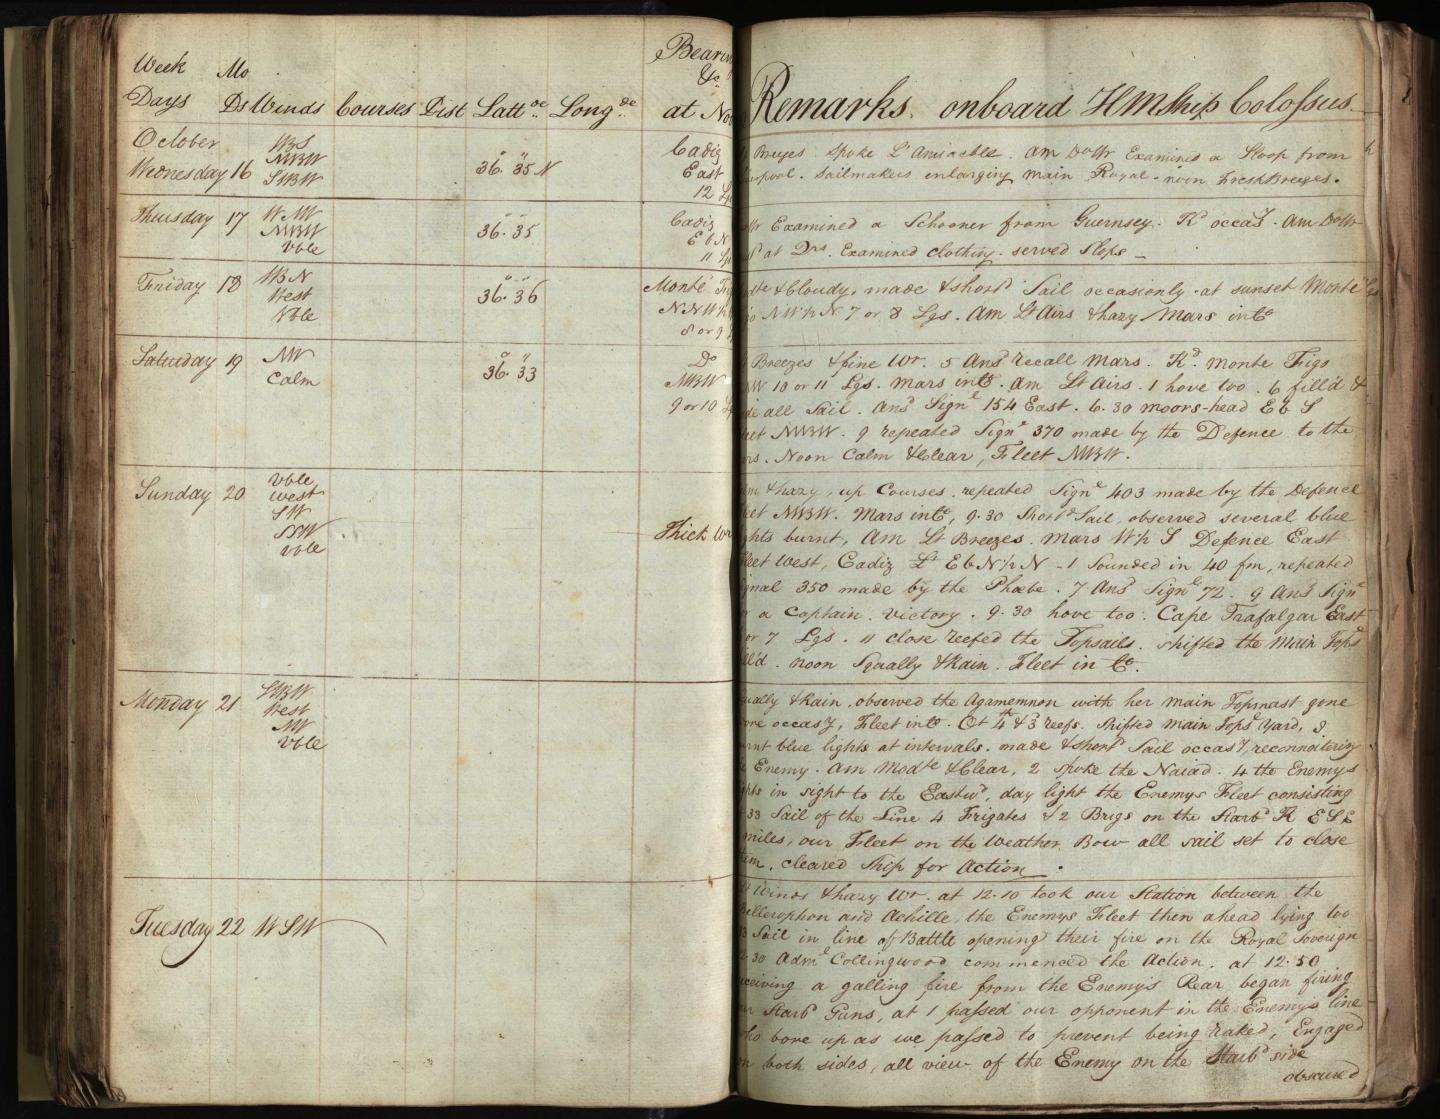 Week Mo Bearin
&c
Days Ds Winds Courses Dist Latt.de Long.de at No
Remarks. onboard HMShip Colossus
October
Wednesday 16
WBS
NWBW
SWBW
36. 35 N
Cadiz
East
12
Thursday 17
WNW
NWBW
Vble
36. 35
Cadiz
E b N
11
Friday 18
WBN
West
Vble
36. 36
Monte
NNW
8 or 9
Saturday 19
NW
Calm
36. 33
Do
NWBW
9 or 10
Sunday 20
Vble
West
SW
SSW
Vble
Thick Wr
Monday 21
SWBW
West
NW
Vble
Tuesday 22 WSW
Breezes spoke L'Amiable. am DoWr Examined a Sloop from
Sailmakers enlarging Main Royal - noon Fresh Breezes.
Examined a Schooner from Guernsey. Kd occasy. am DoWr
at Qrs. Examined clothing. served Slops
& Cloudy, made & shortd Sail occasionly. at sunset Monte
NWbN 7 or 8 Lgs. Am Lt Airs & hazy Mars in Co
Breezes & fine Wr. 5 Ansd recall Mars. Kd. Monte Figo
10 or 11 Lgs. Mars in Co. am Lt Airs. 1 hove too. 6 fill'd &
all Sail. Ansd Signl 154 East. 6.30 moors-head E b S
NWBW. 9 repeated Signl 370 made by the Defence to the
Noon Calm & Clear, Fleet NWBW.
& hazy, up Courses. repeated Signl 403 made by the Defence
NWBW. Mars in Co, 9.30 Shortd Sail, observed several blue
burnt, Am Lt Breezes. Mars WbS Defence East
West, Cadiz Lt EbN½N - 1 Sounded in 40 fm, repeated
350 made by the Phœbe. 7 Ansd Signl 72. 9 Ansd Signl
a Captain. Victory. 9.30 hove too. Cape Trafalgar East
or 7 Lgs. 11 close reefed the Topsails. shifted the Main Topsl
noon Squally & Rain. Fleet in Co.
& Rain. observed the Agamemnon with her main Topmast gone
occasy, Fleet in Co. Ot 4th & 3d reefs. Shifted main Topsl Yard, 8
blue lights at intervals. made & shortd Sail occasy, reconnoitering
Enemy. Am Modte & Clear, 2 spoke the Naiad. 4 the Enemys
in sight to the Eastwd, day light the Enemys Fleet consisting
33 Sail of the Line 4 Frigates & 2 Brigs on the Starbd
miles, our Fleet on the Weather Bow all sail set to close
cleared Ship for Action
Winds & hazy Wr. at 12.10 took our Station between the
Bellerophon and Achille, the Enemys Fleet then ahead lying too
Sail in line of Battle opening their fire on the Royal Sovereign
30 Adml Collingwood commenced the Action. at 12.50
a galling fire from the Enemy's Rear began firing
Starbd Guns, at 1 passed our opponent in the Enemys line
bore up as we passed to prevent being raked, Engaged
both sides, all view of the Enemy on the Starbd side
obscured